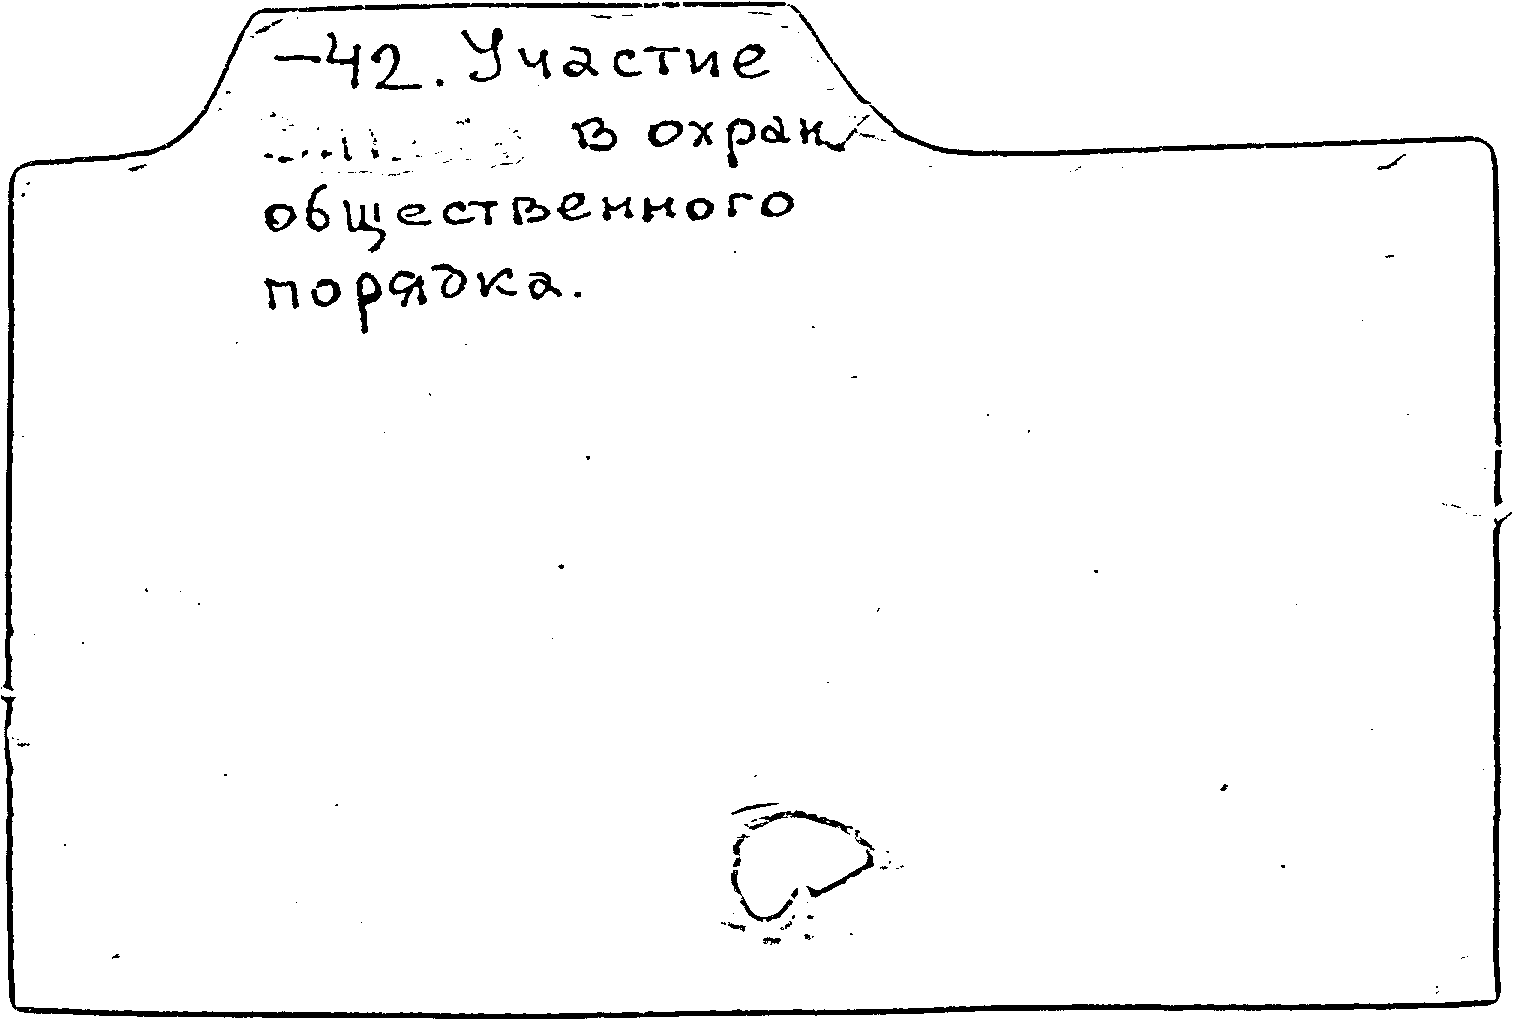 –42. Участие
в охран
общественного
порядка.